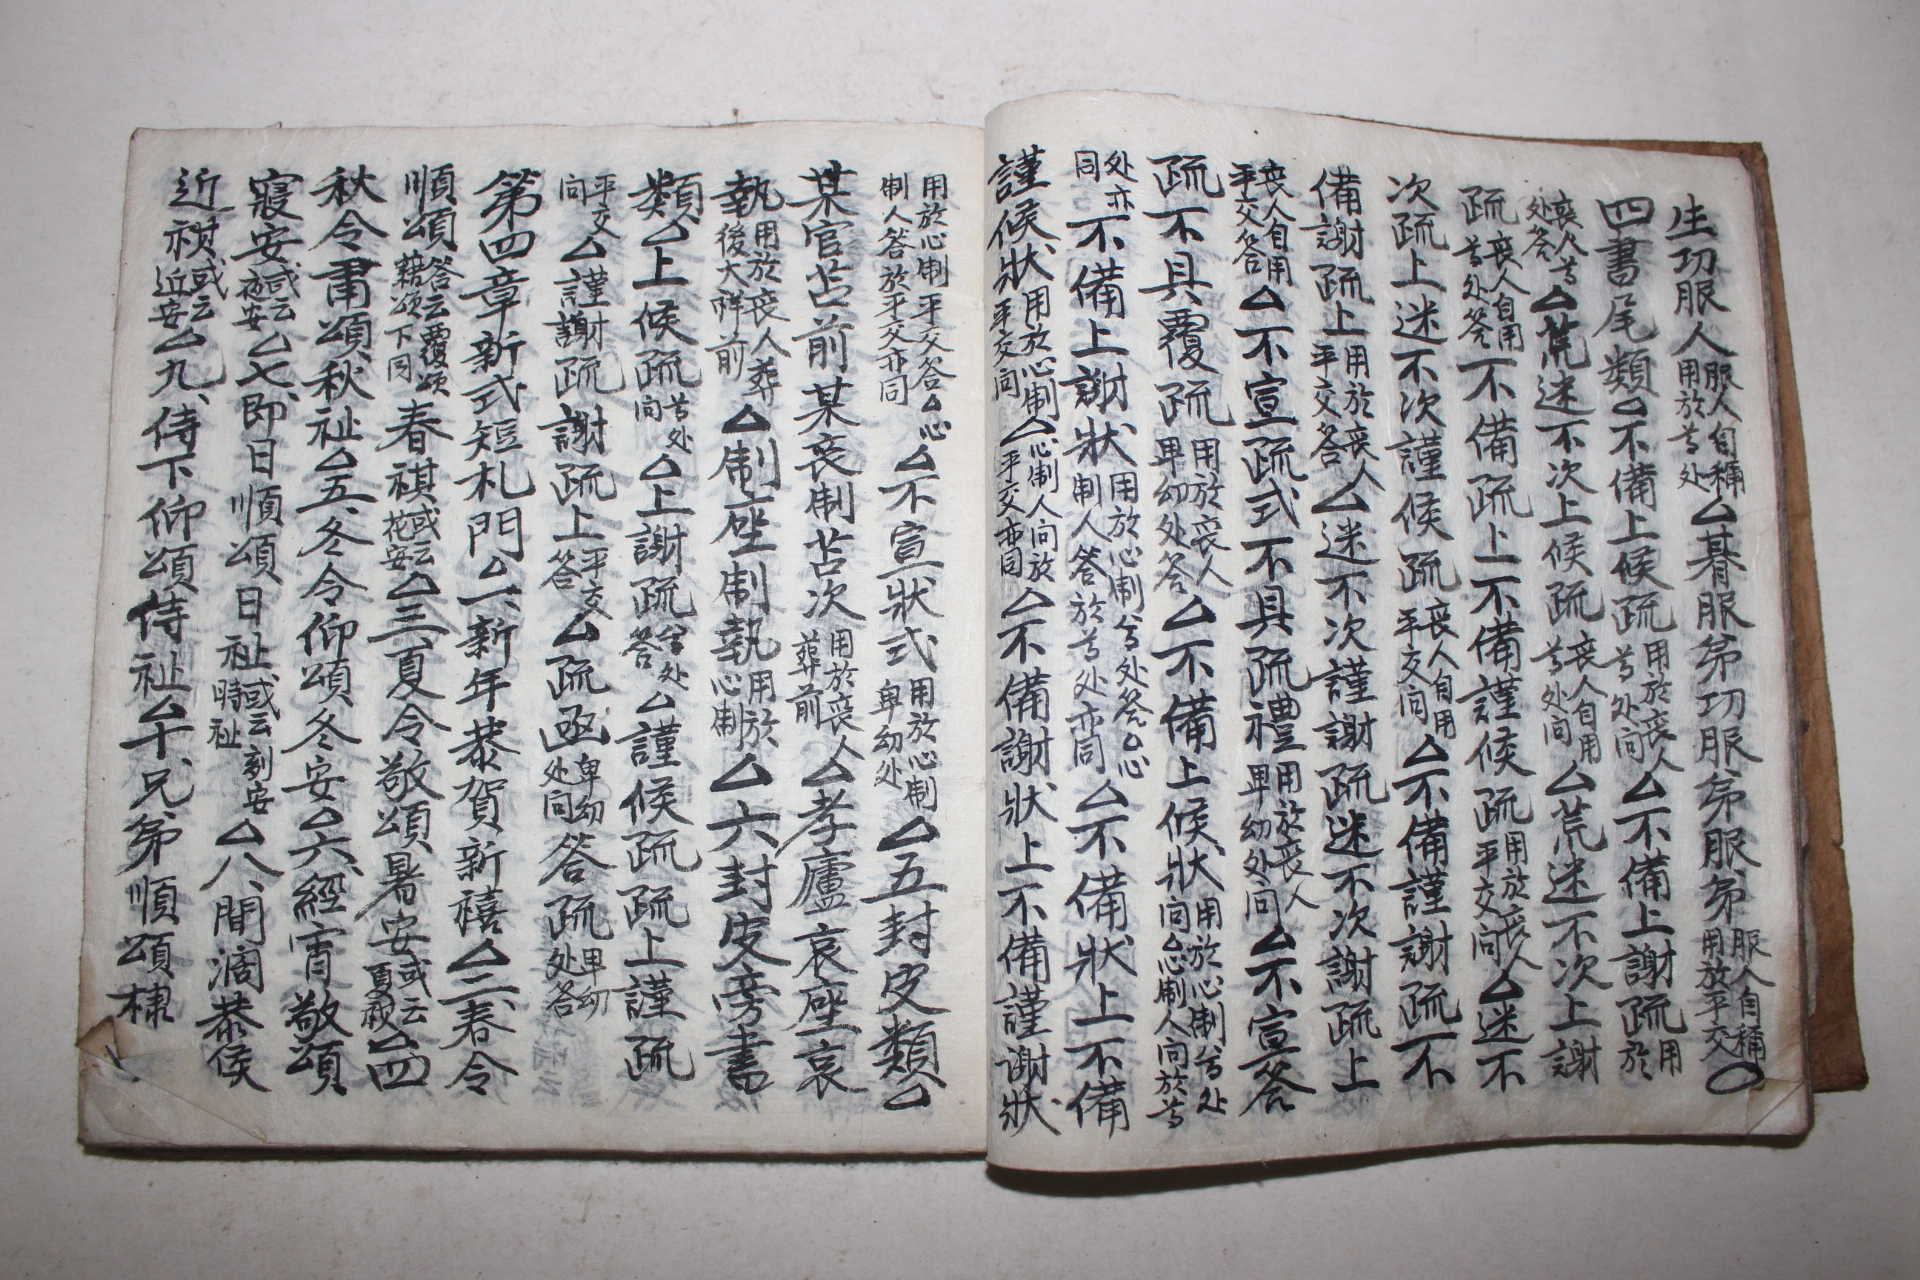 生功服人服人自稱用於尊处△朞服弟功服弟服弟服人自稱用放平交○
四書尾類△不備上候疏用於喪人尊处向△不備上謝疏用於
喪人尊处答△荒迷不次上候疏喪人自用尊处向△荒迷不次上謝
疏喪人自用尊处答不備疏上不備謹候疏用放喪人平交向△迷不
次疏上迷不次謹候疏喪人自用平交向△不備謹謝疏不
備謝疏上用於喪人平交答△迷不次謹謝疏迷不次謝疏上
喪人自用平交答△不宣疏式不具疏禮用放喪人卑幼处向△不宣答
疏不具覆疏用放喪人卑幼处答△不備上候狀用放心制尊处向△心制人向於尊
处亦同不備上謝狀用放心制尊处答△心制人答於尊处亦同△不備狀上不備
謹候狀用放心制平交向△心制人向放平交亦同△不備謝狀上不備謹謝狀
用於心制平交答△心制人答於平交亦同△不宣狀式用放心制卑幼处△五封皮類△
某官苫前某喪制苫次用於喪人葬前△孝廬哀座哀
執用放喪人葬後大祥前△制座制執用於心制△六封皮旁書
類△上候疏尊处向△上謝疏尊处答△謹候疏疏上謹疏
平交向△謹謝疏謝疏上平交答△疏函卑幼处向答疏卑幼处答
第四章新式短札門△一、新年恭賀新禧△二、春令
順頌答云覆頌藉頌下同春祺或云花安△三、夏令敬頌暑安或云夏祺△四
秋令肅頌秋祉△五、冬令仰頌冬安△六、經宵敬頌
寢安或云夜安△七、即日順頌日祉或云刻安時祉△八、間滴恭候
近祺或云近安△九、侍下仰頌侍祉△十、兄弟順頌棣